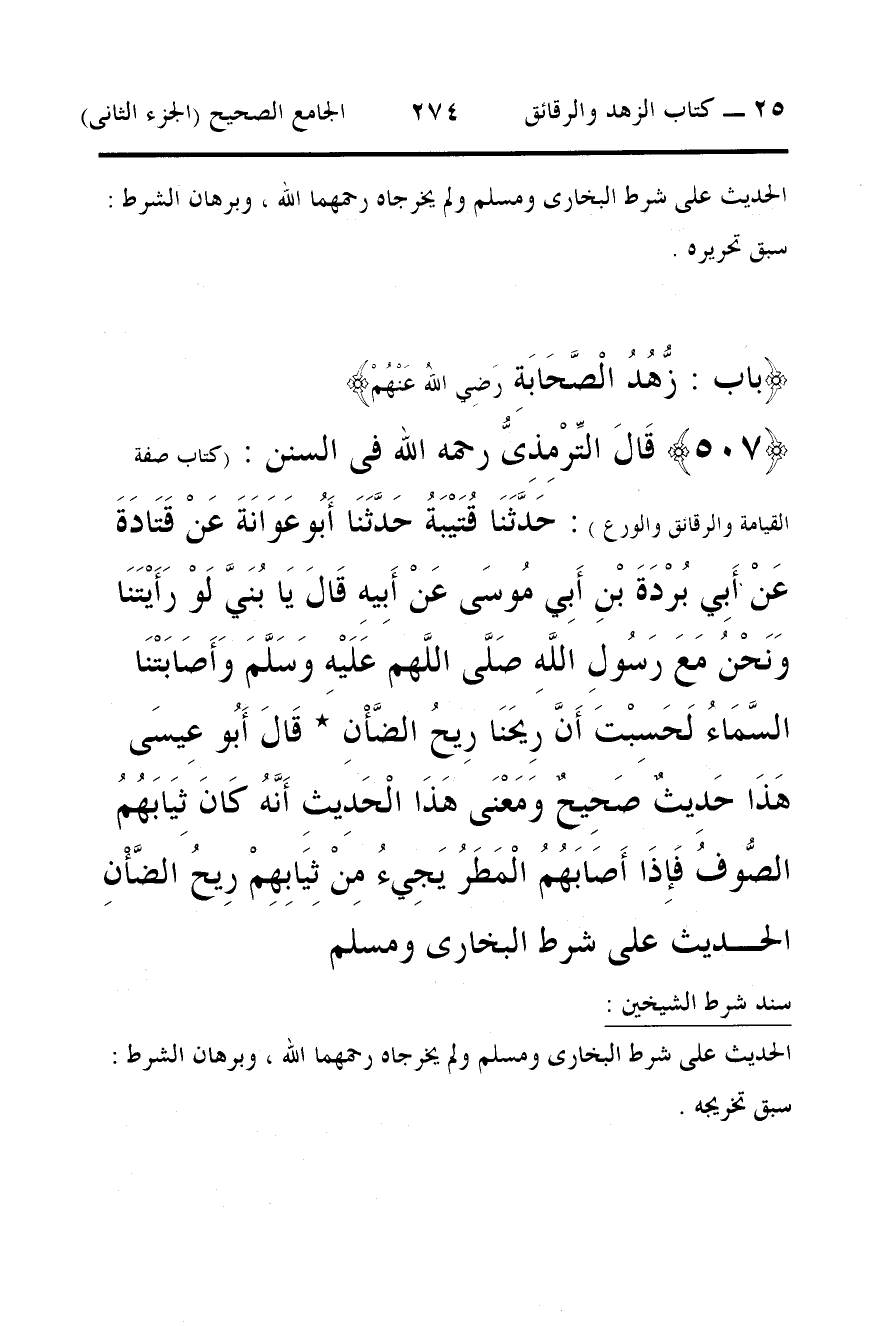 ٢٥ ــ كتاب الزهد والرقائق ٢٧٤ الجامع الصحيح (الجزء الثانى)
الحديث على شرط البخارى ومسلم ولم يخرجاه رحمهما الله ، وبرهان الشرط :
سبق تحريره .
﴿باب : زُهْدُ الْصَّحَابَةِ رَضِي اللهُ عَنْهُمْ﴾
﴿٥٠٧﴾ قَالَ التِّرْمِذِىُّ رحمه الله فى السنن : (كتاب صفة
القيامة والرقائق والورع ) : حَدَّثَنَا قُتَيْبَةُ حَدَّثَنَا أَبُو عَوَانَةَ عَنْ قَتَادَةَ
عَنْ أَبِي بُرْدَةَ بْنِ أَبِي مُوسَى عَنْ أَبِيهِ قَالَ يَا بُنَيَّ لَوْ رَأَيْتَنَا
وَنَحْنُ مَعَ رَسُولِ اللَّهِ صَلَّى اللَّهم عَلَيْهِ وَسَلَّمَ وَأَصَابَتْنَا
السَّمَاءُ لَحَسِبْتَ أَنَّ رِيحَنَا رِيحُ الضَّأْنِ * قَالَ أَبُو عِيسَى
هَذَا حَدِيثٌ صَحِيحٌ وَمَعْنَى هَذَا الْحَدِيثِ أَنَّهُ كَانَ ثِيَابَهُمُ
الصُّوفُ فَإِذَا أَصَابَهُمُ الْمَطَرُ يَجِيءُ مِنْ ثِيَابِهِمْ رِيحُ الضَّأْنِ
الحـــديث على شرط البخارى ومسلم
سند شرط الشيخين :
الحديث على شرط البخارى ومسلم ولم يخرجاه رحمهما الله ، وبرهان الشرط :
سبق تخريجه .